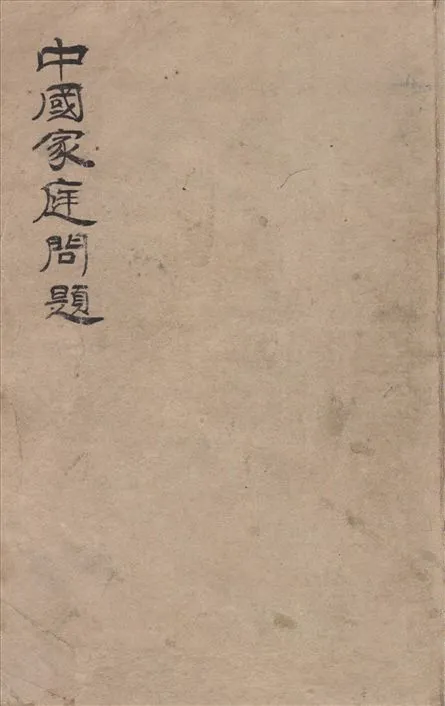 中國家庭問題